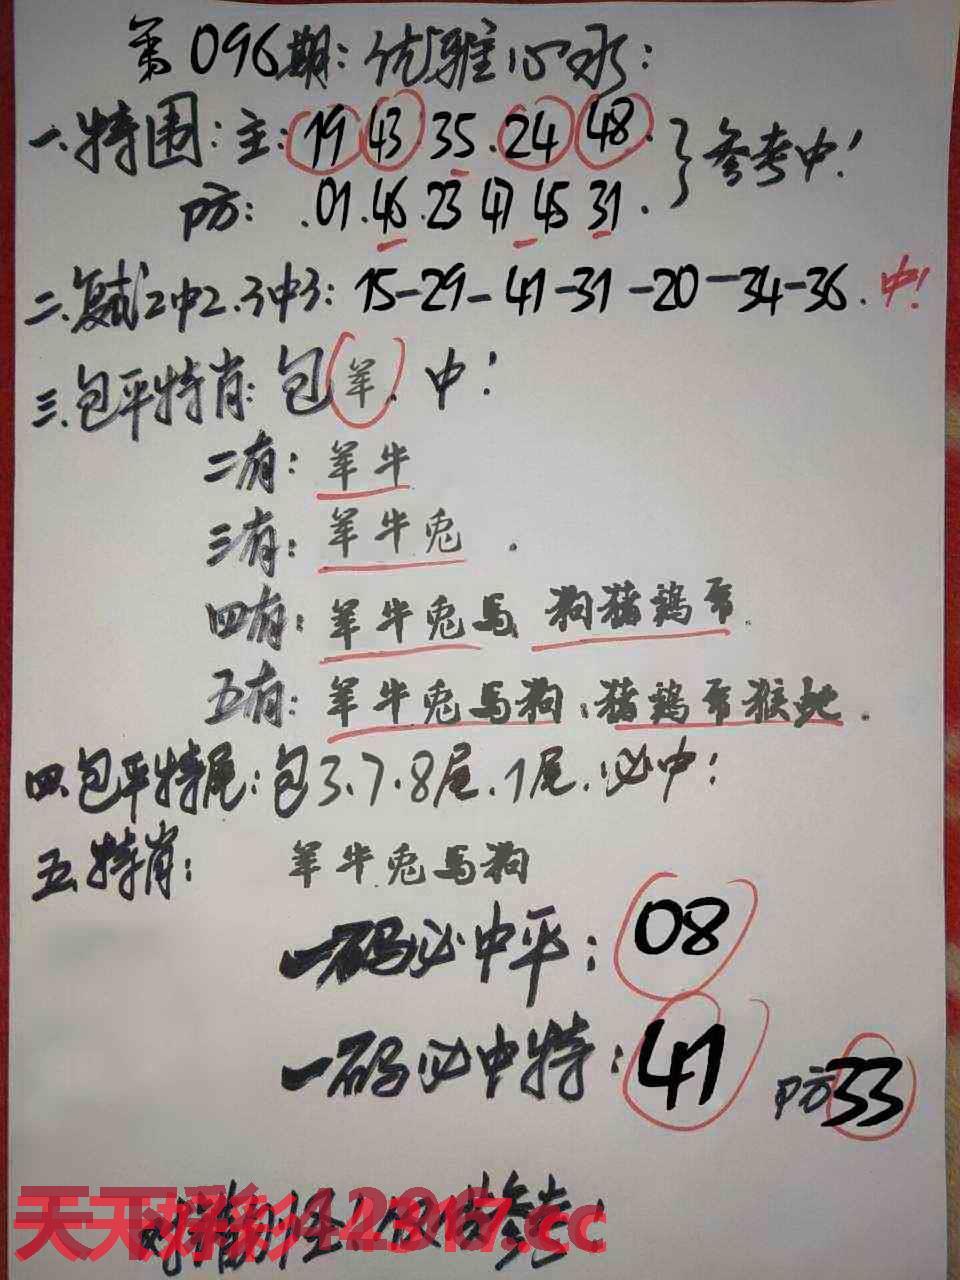 第096期:优雅心水:
一.特围:主:19 43 35.24 48. }参考中!
防:.01.46.23 47 45 31.
二.复试2中2.3中3:15-29-41-31-20-34-36.中!
三.包平特肖:包羊.中!
二有:羊牛
三有:羊牛兔.
四有:羊牛兔马 狗猪鸡
五有:羊牛兔马狗:猪鸡 猴蛇.
四.包平特尾:包3.7.8尾.1尾.必中!
五.特肖: 羊牛兔马狗
一码必中平:08
一码必中特:41 防33
天下彩 cc